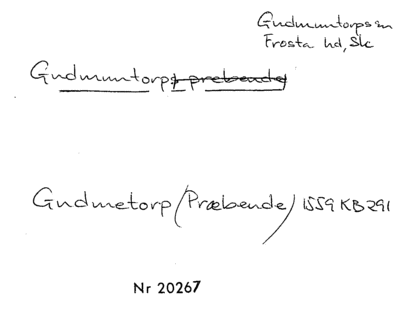 Gudmuntorps sn
Frosta hd, Skc
Gudmuntorps prebende
Gudmetorp (Præbende) 1559 KB 291
Nr 20267